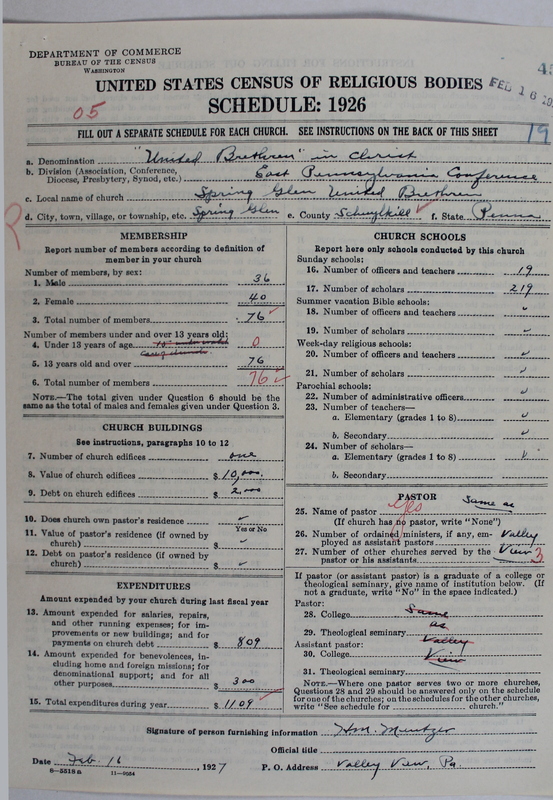 DEPARTMENT OF COMMERCE
BUREAU OF THE CENSUS
WASHINGTON
UNITED STATES CENSUS OF RELIGIOUS BODIES
FEB 16
SCHEDULE: 1926
05
FILL OUT A SEPARATE SCHEDULE FOR EACH CHURCH. SEE INSTRUCTIONS ON THE BACK OF THIS SHEET
19
a. Denomination "United Brethren" in Christ
b. Division (Association, Conference, Diocese, Presbytery, Synod, etc.) East Pennsylvania Conference
c. Local name of church Spring Glen United Brethren
d. City, town, village, or township, etc. Spring Glen e. County Schuylkill f. State Penna
MEMBERSHIP
Report number of members according to definition of
member in your church
Number of members, by sex:
1. Male 36
2. Female 40
3. Total number of members 76
Number of members under and over 13 years old:
4. Under 13 years of age 0
5. 13 years old and over 76
6. Total number of members 76
NOTE.—The total given under Question 6 should be the
same as the total of males and females given under Question 3.
CHURCH BUILDINGS
See instructions, paragraphs 10 to 12
7. Number of church edifices one
8. Value of church edifices $ 10,000.
9. Debt on church edifices $ 2,000
10. Does church own pastor's residence
Yes or No
11. Value of pastor's residence (if owned by
church) $
12. Debt on pastor's residence (if owned by
church) $
EXPENDITURES
Amount expended by your church during last fiscal year
13. Amount expended for salaries, repairs,
and other running expenses; for im-
provements or new buildings; and for
payments on church debt $ 809
14. Amount expended for benevolences, in-
cluding home and foreign missions; for
denominational support; and for all
other purposes $ 300
15. Total expenditures during year $ 1109
CHURCH SCHOOLS
Report here only schools conducted by this church
Sunday schools:
16. Number of officers and teachers 19
17. Number of scholars 219
Summer vacation Bible schools:
18. Number of officers and teachers
19. Number of scholars
Week-day religious schools:
20. Number of officers and teachers
21. Number of scholars
Parochial schools:
22. Number of administrative officers
23. Number of teachers—
a. Elementary (grades 1 to 8)
b. Secondary
24. Number of scholars—
a. Elementary (grades 1 to 8)
b. Secondary
PASTOR
25. Name of pastor yes Same as
(If church has no pastor, write "None")
26. Number of ordained ministers, if any, em-
ployed as assistant pastors Valley
27. Number of other churches served by the
pastor or his assistants View 3
If pastor (or assistant pastor) is a graduate of a college or
theological seminary, give name of institution below. (If
not a graduate, write "No" in the space indicated.)
Pastor:
28. College Same
as
29. Theological seminary Valley
Assistant pastor:
30. College View
31. Theological seminary
NOTE.—Where one pastor serves two or more churches,
Questions 28 and 29 should be answered only on the schedule
for one of the churches; on the schedules for the other churches,
write "See schedule for church."
Signature of person furnishing information Hm. Mentzer
Official title
Date Feb. 16, 1927 P. O. Address Valley View, Pa.
8—5518a 11—9034